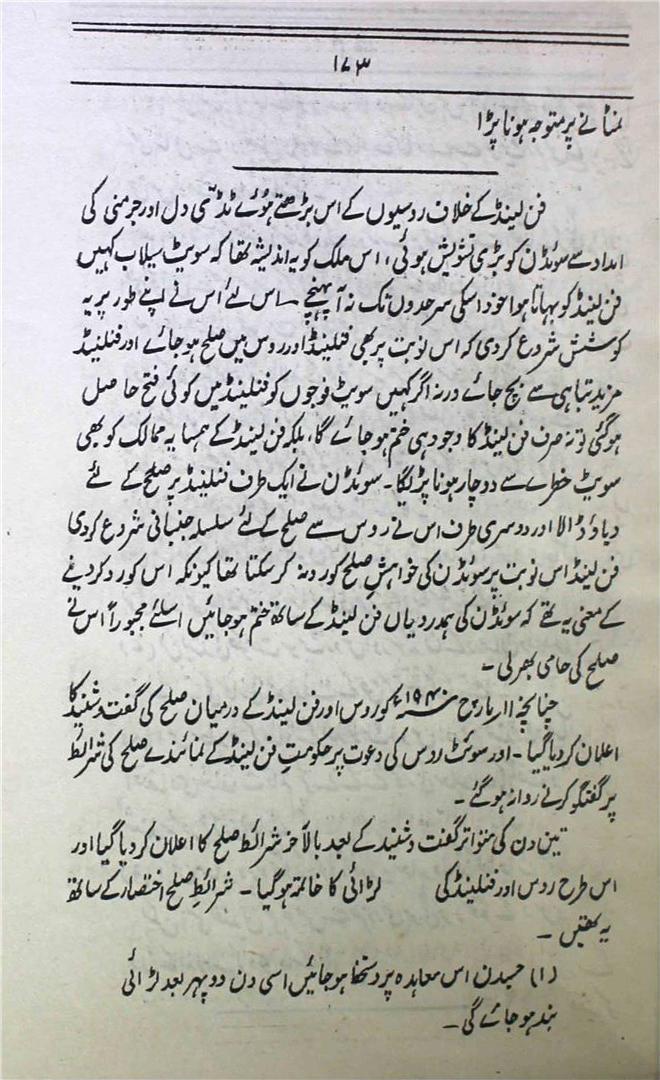 ۱۷۳
نمٹانے پر متوجہ ہونا پڑا
فن لینڈ کے خلاف روسیوں کے اس بڑھتے ہوئے ٹڈّی دل اور جرمنی کی
امداد سے سوئڈن کو بڑی تشویش ہوئی، اس ملک کو یہ اندیشہ تھا کہ سویٹ سیلاب کہیں
فن لینڈ کو بہاتا ہوا خود اسکی سرحدوں تک نہ آ پہنچے ۔ اس لئے اس نے اپنے طور پر یہ
کوشش شروع کردی کہ اس نوبت پر بھی فنلینڈ اور روس میں صلح ہو جائے اور فنلینڈ
مزید تباہی سے بچ جائے ورنہ اگر کہیں سویٹ فوجوں کو فنلینڈ میں کوئی فتح حاصل
ہوگئی تو نہ صرف فن لینڈ کا وجود ہی ختم ہو جائے گا، بلکہ فن لینڈ کے ہمسایہ ممالک کو بھی
سویٹ خطرے سے دوچار ہونا پڑیگا ۔ سوئڈن نے ایک طرف فنلینڈ پر صلح کے لئے
دباؤ ڈالا اور دوسری طرف اس نے روس سے صلح کے لئے سلسلہ جنبانی شروع کردی
فن لینڈ اس نوبت پر سوئڈن کی خواہشِ صلح کو رد نہ کر سکتا تھا کیونکہ اس کو رد کردینے
کے معنی یہ تھے کہ سوئڈن کی ہمدردیاں فن لینڈ کے ساتھ ختم ہو جائیں اسلئے مجبوراً اس نے
صلح کی حامی بھر لی ۔
چنانچہ ۱۱ مارچ ۱۹۴۰ء کو روس اور فن لینڈ کے درمیان صلح کی گفت و شنید کا
اعلان کر دیا گیا ۔ اور سوئٹ روس کی دعوت پر حکومتِ فن لینڈ کے نمائندے صلح کی شرائط
پر گفتگو کرنے روانہ ہو گئے ۔
تین دن کی متواتر گفت و شنید کے بعد بالآخر شرائط صلح کا اعلان کر دیا گیا اور
اس طرح روس اور فنلینڈ کی لڑائی کا خاتمہ ہو گیا ۔ شرائطِ صلح اختصار کے ساتھ
یہ تھیں ۔
(۱) جسدن اس معاہدہ پر دستخط ہو جائیں اسی دن دوپہر بعد لڑائی
بند ہو جائے گی ۔